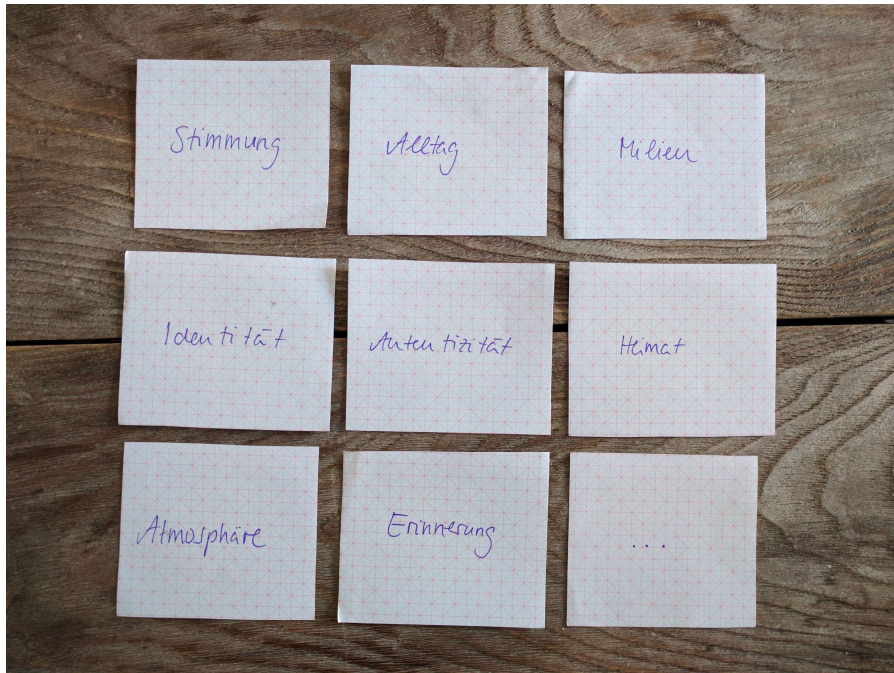 Stimmung
Alltag
Milieu
Identität
Autentizität
Heimat
Atmosphäre
Erinnerung
...